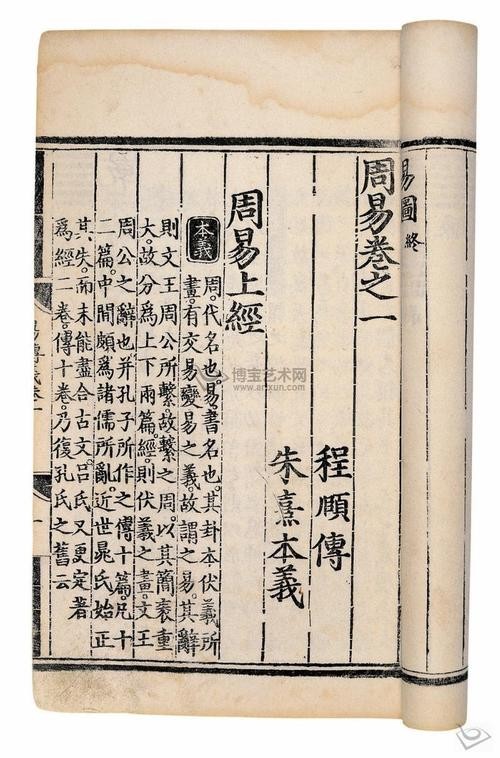 易圖終
周易卷之一
程頤傳
朱熹本義
周易上經
本義 周。代名也。易。書名也。其卦本伏羲所
畫。有交易變易之義。故謂之易。其辭
則文王周公所繫。故繫之周。以其簡袠重
大。故分爲上下兩篇。經。則伏羲之畫。文王
周公之辭也。并孔子所作之傳十篇。凡十
二篇。中間頗爲諸儒所亂。近世晁氏始正
其失。而未能盡合古文。呂氏又更定著
爲經二卷。傳十卷。乃復孔氏之舊云
博宝艺术网